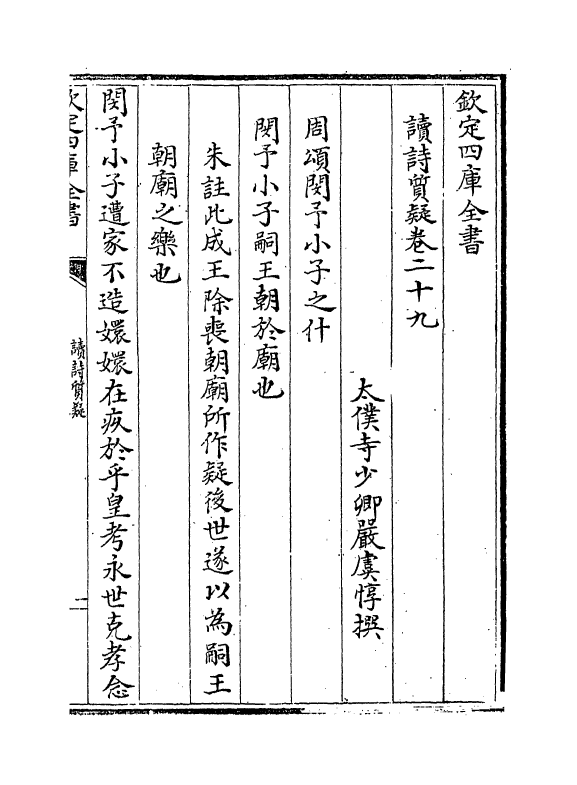 欽定四庫全書
讀詩質疑卷二十九
太僕寺少卿嚴虞惇撰
周頌閔予小子之什
閔予小子嗣王朝於廟也
朱註此成王除喪朝廟所作疑後世遂以為嗣王
朝廟之樂也
閔予小子遭家不造嬛嬛在疚於乎皇考永世克孝念
欽定四庫全書
讀詩質疑